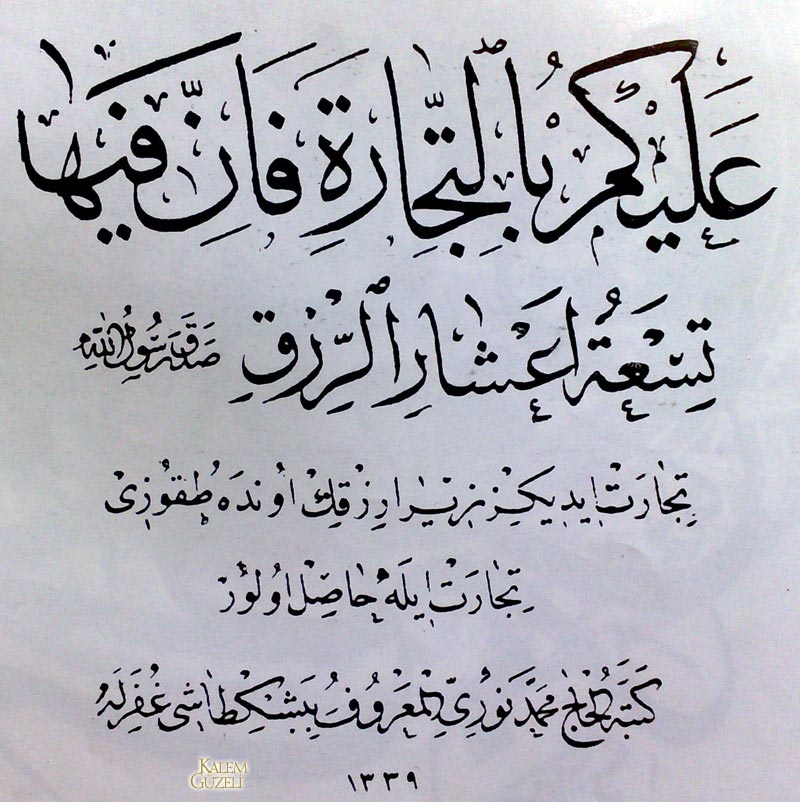 عَلَيْكُمْ بِالتِّجَارَةِ فَاِنَّ فِيهَا
تِسْعَةُ اَعْشَارِ الرِّزْقِ صَدَقَ رَسُولُ اللّٰهِ
تِجَارَتْ ايديكز زيرا رِزْقِكْ اوُنْدَه طُقوُزِى
تِجَارَتْ ايلَه حَاصِلْ اوُلوُرْ
كَتَبَهُ الحَاج مُحَمَّدْ نُورِى المَعْرُوفُ بِبَشِكْطَاشِى غُفِرَ لَهُ
١٣٣٩
KALEM
GÜZELİ